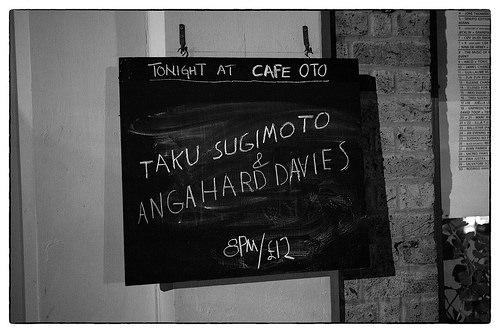 TONIGHT AT CAFE OTO
TAKU SUGIMOTO
&
ANGAHARD DAVIES
8PM/£12